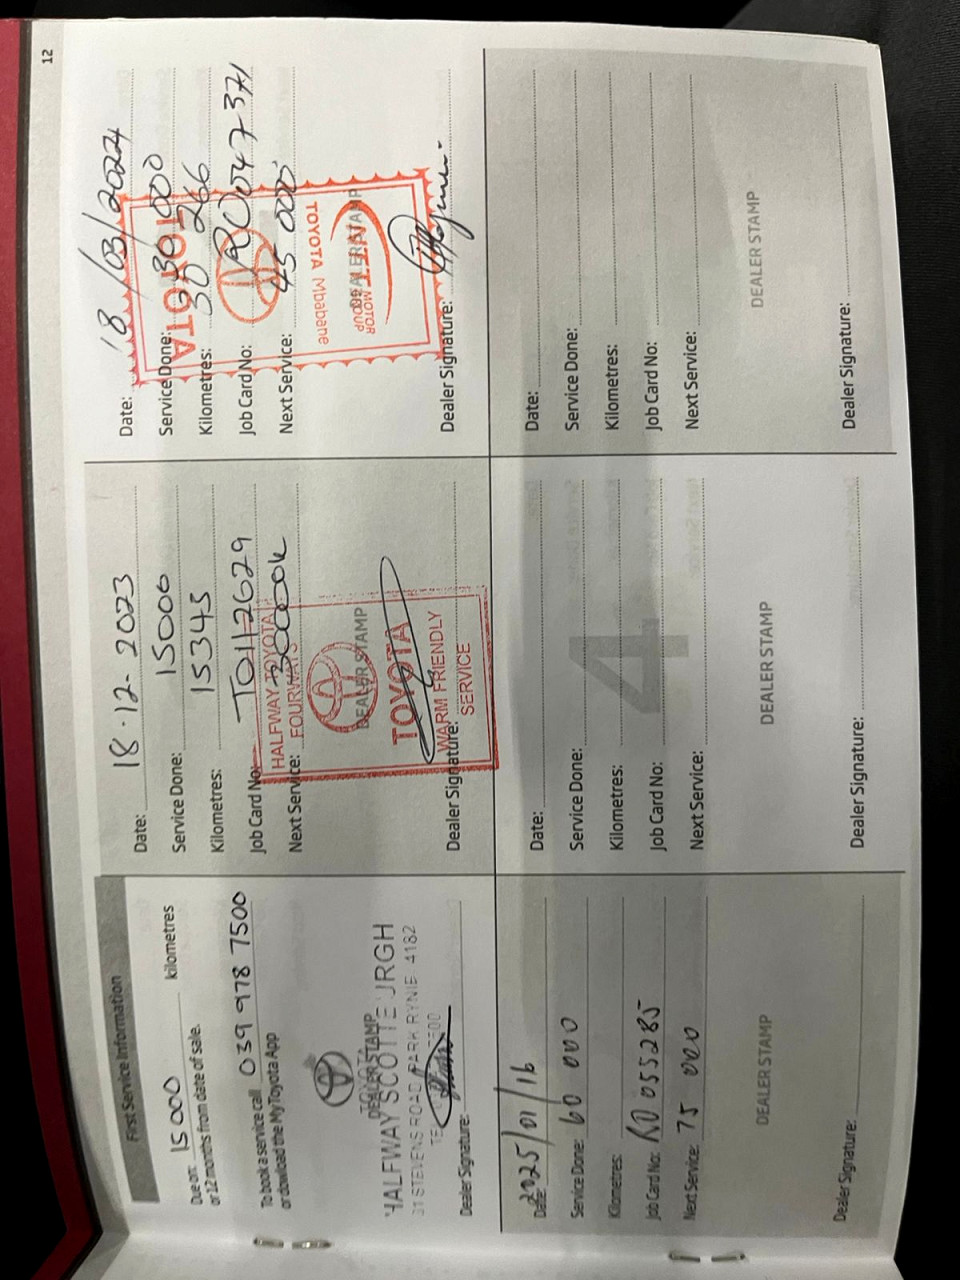 12
First Service Information
Due on: 15 000 kilometres
or 12 months from date of sale.
To book a service call 039 978 7500
or download the MyToyota App
TOYOTA
DEALER STAMP
HALFWAY SCOTTBURGH
31 STEVENS ROAD PARK RYNIE 4182
Dealer Signature:
Date: 18-12-2023
Service Done: 15000
Kilometres: 15345
Job Card No: T0112629
Next Service: 30000k
HALFWAY TOYOTA
FOURWAYS
DEALER STAMP
TOYOTA
WARM FRIENDLY
SERVICE
Dealer Signature:
Date: 18/03/2024
Service Done: 30 000
Kilometres: 30 266
Job Card No:
Next Service: 45 000
TOYOTA
TOYOTA Mbabane
DEALER STAMP
MOTOR
GROUP
Dealer Signature:
Date: 2025/01/16
Service Done: 60 000
Kilometres:
Job Card No: RO 055285
Next Service: 75 000
DEALER STAMP
Dealer Signature:
4
Date:
Service Done:
Kilometres:
Job Card No:
Next Service:
DEALER STAMP
Dealer Signature:
Date:
Service Done:
Kilometres:
Job Card No:
Next Service:
DEALER STAMP
Dealer Signature: